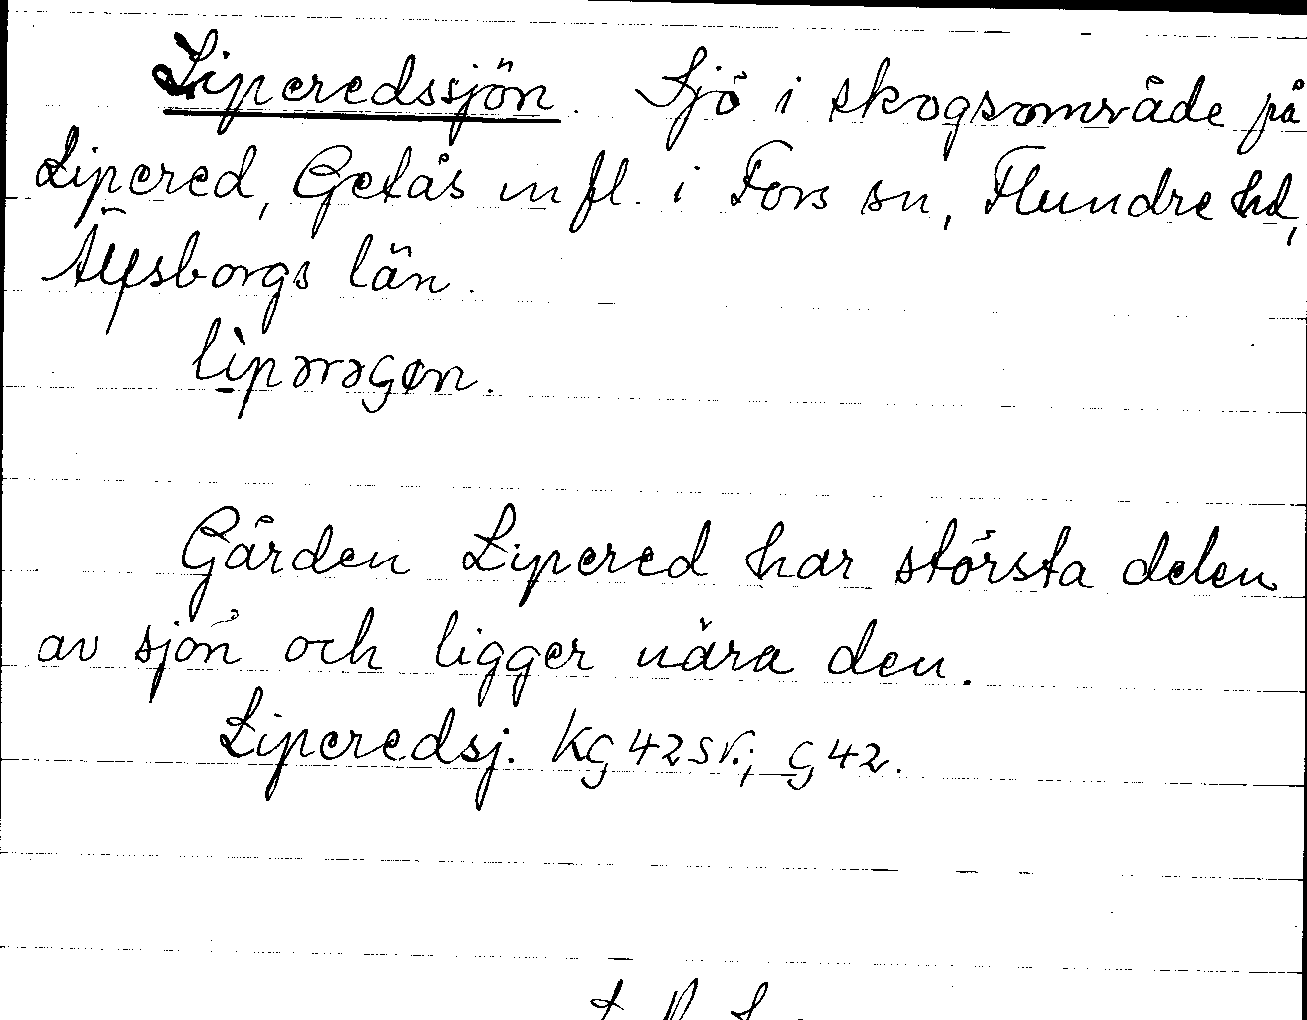 Liperedssjön. Sjö i skogsområde på
Lipered, Getås m fl. i Fors sn, Flundre hd,
Älfsborgs län.
Gården Lipered har största delen
av sjön och ligger nära den.
Liperedsj. KG 42 SV.; G 42.